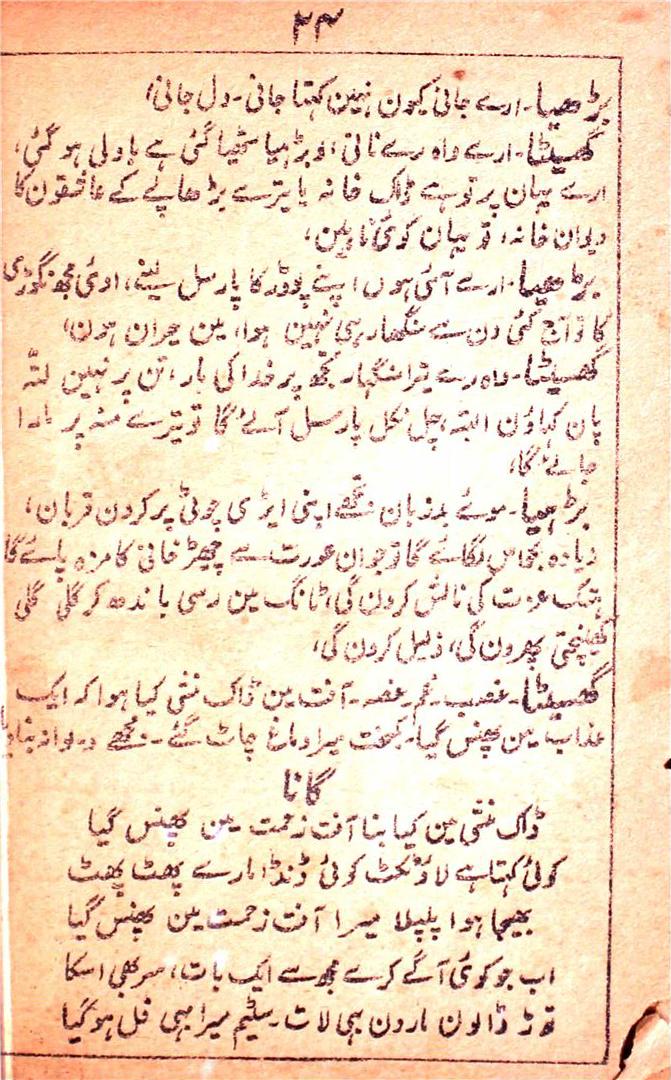 ۲۴
بڑھیا۔ ارے جانی کیون نہین کہتا جانی۔ دل جانی،
گھسیٹا۔ ارے واہ رے نانی، او بڑہیا سٹھیا گئی ہے باولی ہوگئی،
ارے یہان پر تو ہے ڈاک خانہ یا تیرے بڑھاپے کے عاشقون کا
دیوان خانہ، تو یہان کوئی نا ہین،
بڑھیا۔ ارے آئی ہوں اپنے پوڈر کا پارسل لینے، اوئی مجھ نگوڑی
کا تو آج کئی دن سے سنگھار ہی نہین ہوا، مین حیران ہون،
گھسیٹا۔ واہ رے تیرا سنگہار تجھ پر خدا کی مار، تن پر نہین لتّہ
پان کہاؤن البتہ، چل نکل پارسل آئے گا تو تیرے منہ پر مارا
جائے گا،
بڑھیا۔ موئے بدزبان تجھے اپنی ایڑی چوٹی پر کردون قربان،
زیادہ بکواس لگائے گا تو جوان عورت سے چھیڑ خانی کا مزہ پائے گا
ہتک عزت کی نالش کردون گی، ٹانگ مین رسی باندھ کر گلی گلی
کھینچتی پھرون گی، ذلیل کرون گی،
گھسیٹا۔ غضب۔ غم۔ غصہ۔ آفت مین ڈاک منشی کیا ہوا کہ ایک
عذاب مین پھنس گیا۔ کمبخت میرا دماغ چاٹ گئے۔ مجھے دیوانہ بنا
گانا
ڈاک منشی مین کیا بنا آفت زحمت مین پھنس گیا
کوئی کہتا ہے لاؤ ٹکٹ کوئی ڈنڈا مارے پھٹ پھٹ
بھیجا ہوا پلپلا میرا آفت زحمت مین پھنس گیا
اب جو کوئی آکے کرے مجھ سے ایک بات، سر بھی اسکا
توڑ ڈالون مارون بہی لات۔ سٹیم میرا بہی فل ہوگیا